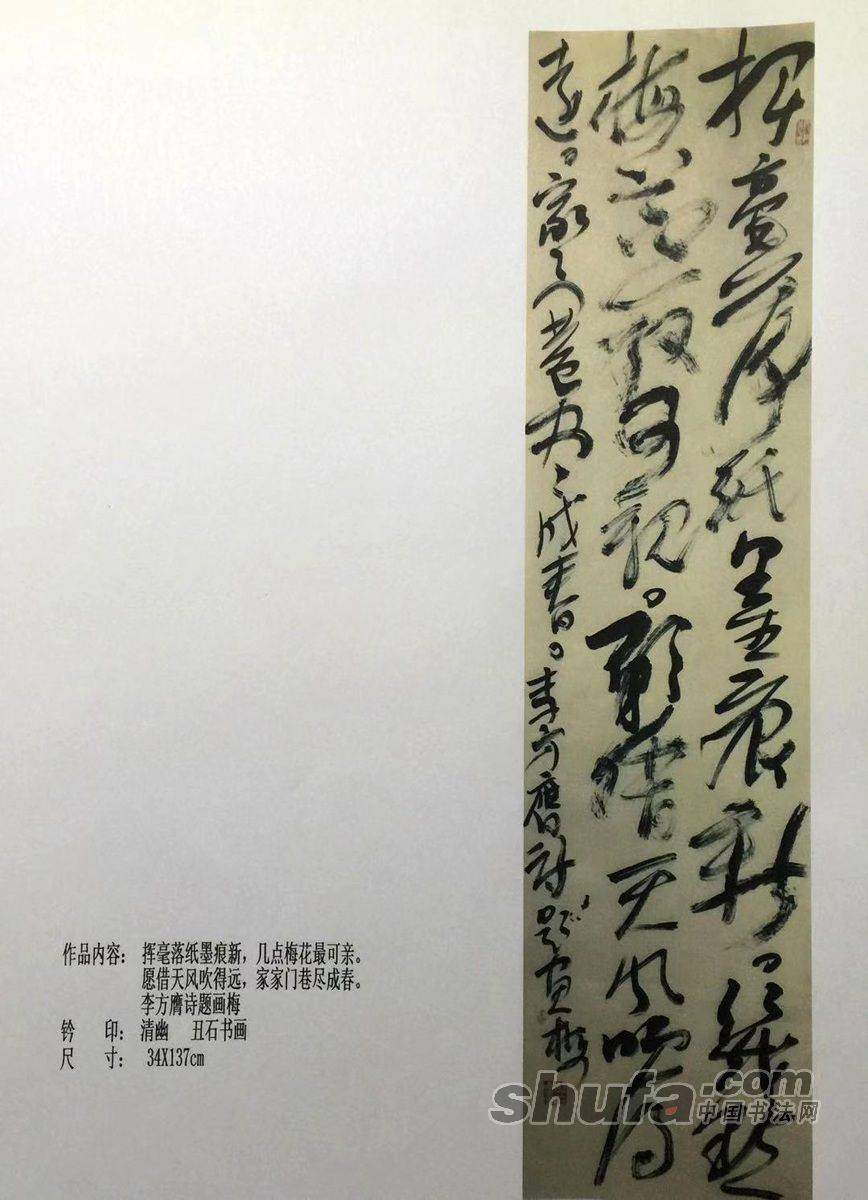 挥毫落纸墨痕新。几点
梅花最可亲。愿借天风吹得
远。家家门巷尽成春。李方膺诗题画梅
作品内容： 挥毫落纸墨痕新，几点梅花最可亲。
愿借天风吹得远，家家门巷尽成春。
李方膺诗题画梅
钤 印： 清幽 丑石书画
尺 寸： 34X137cm
shufa.com
中国书法网